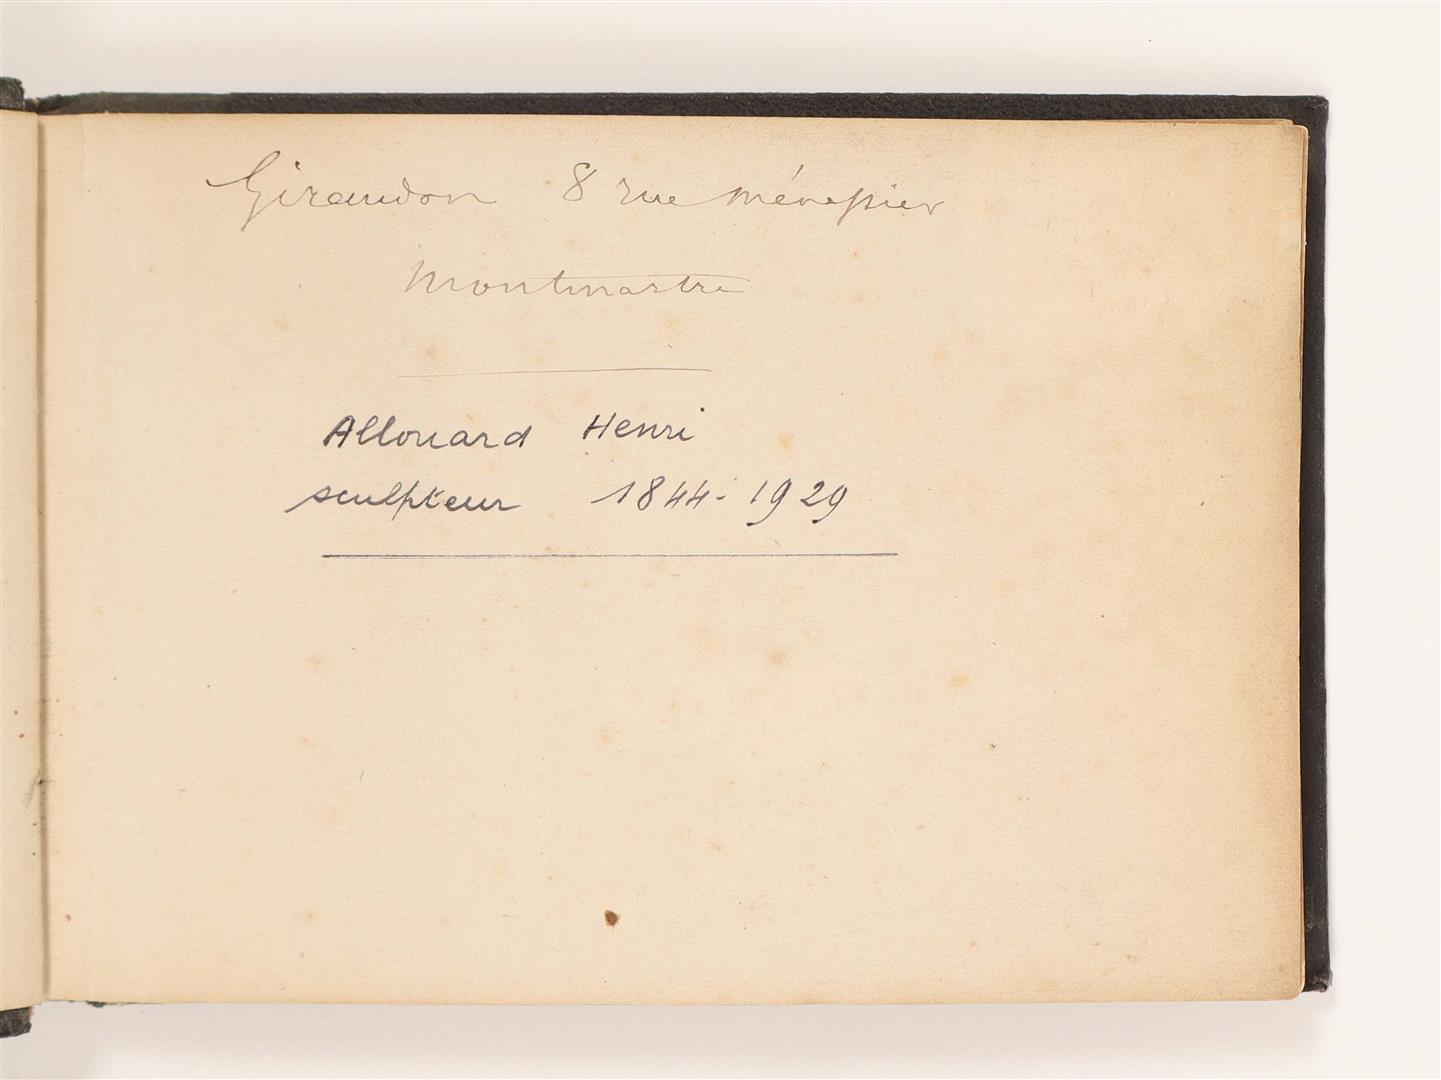 Giraudon 8 rue Ménessier
Montmartre
Allouard Henri
sculpteur 1844-1929